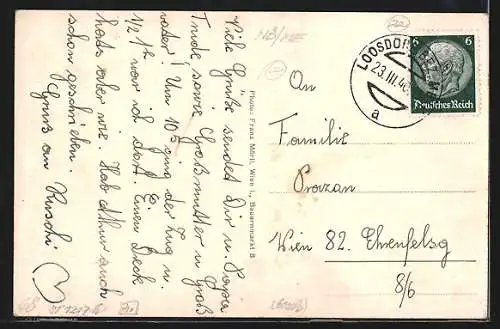 Viele Grüße sendet Dir u. Papa
Trude sowie Großmutter u. Groß
vater! Um 10h ging der Zug u.
1/2 1h war ich dort. Einen Deck
hats aber wie. Hab Arthur auch
schon geschrieben.
Gruß an Puschi
Photo: Franz Mörtl, Wien I., Bauernmarkt 8
LOOSDOR
23.III.40
a
6 6
Deutsches Reich
An
Familie
Prazan
Wien 82. Ehrenfelsg
8/6